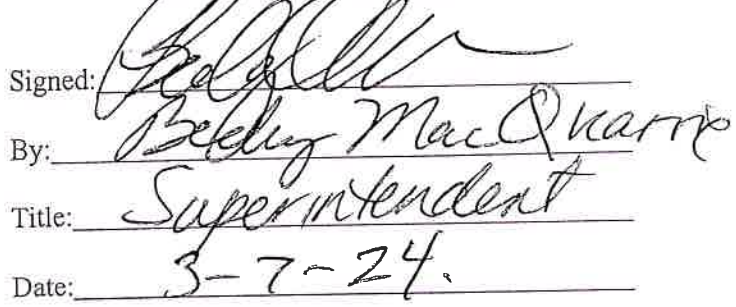 Signed:
By: Becky MacQuarrie
Title: Superintendent
Date: 3-7-24.